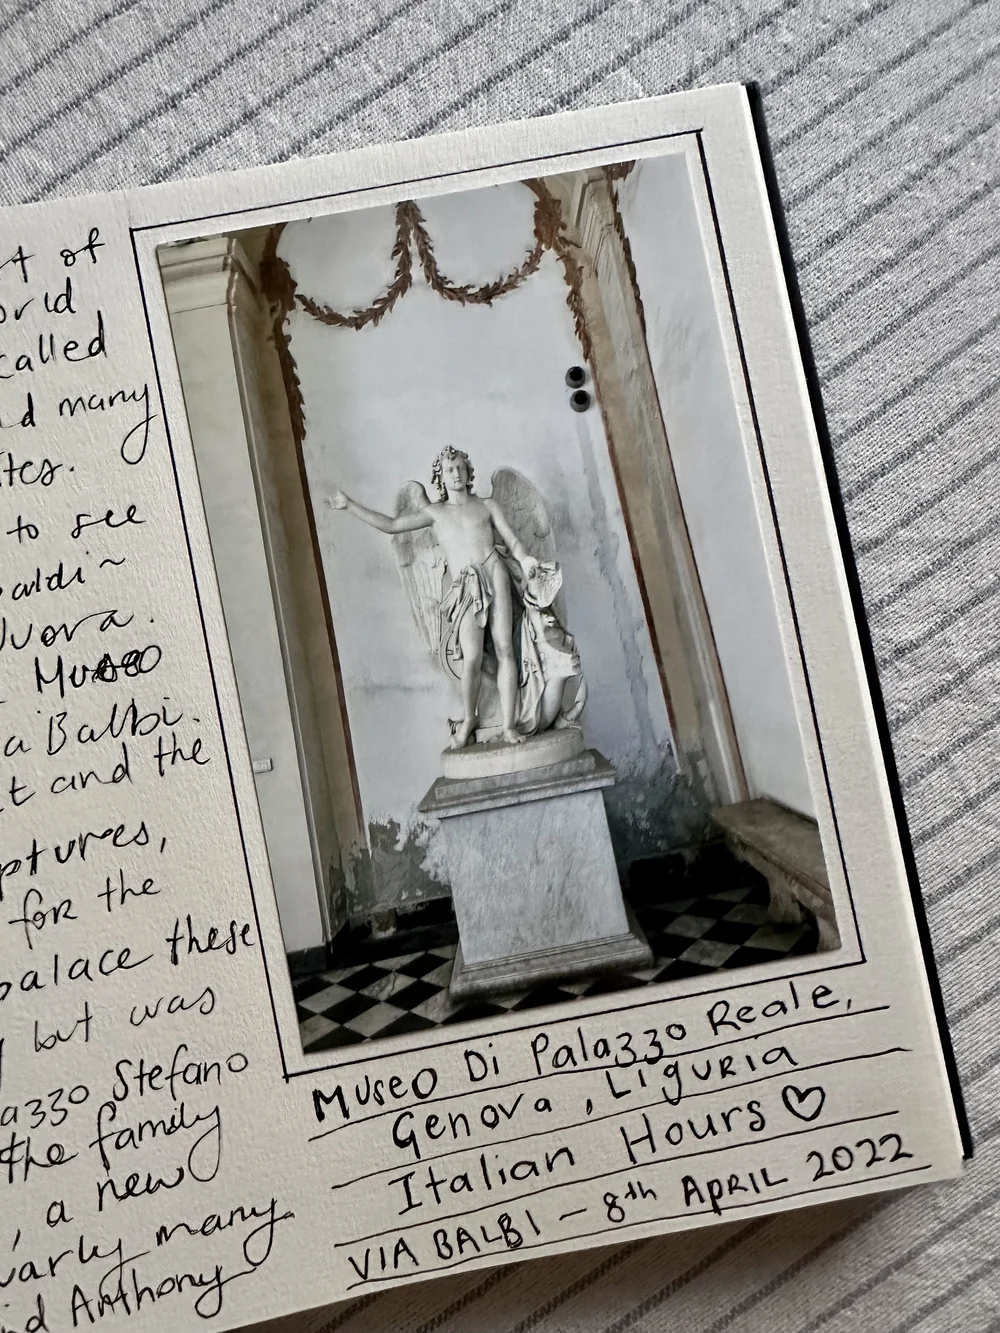 of
called
many
to see
Museo
Balbi.
and the
for the
palace these
but was
Stefano
the family
, a new
many
Anthony
Museo Di Palazzo Reale,
Genova, Liguria
Italian Hours ♡
VIA BALBI – 8th APRIL 2022